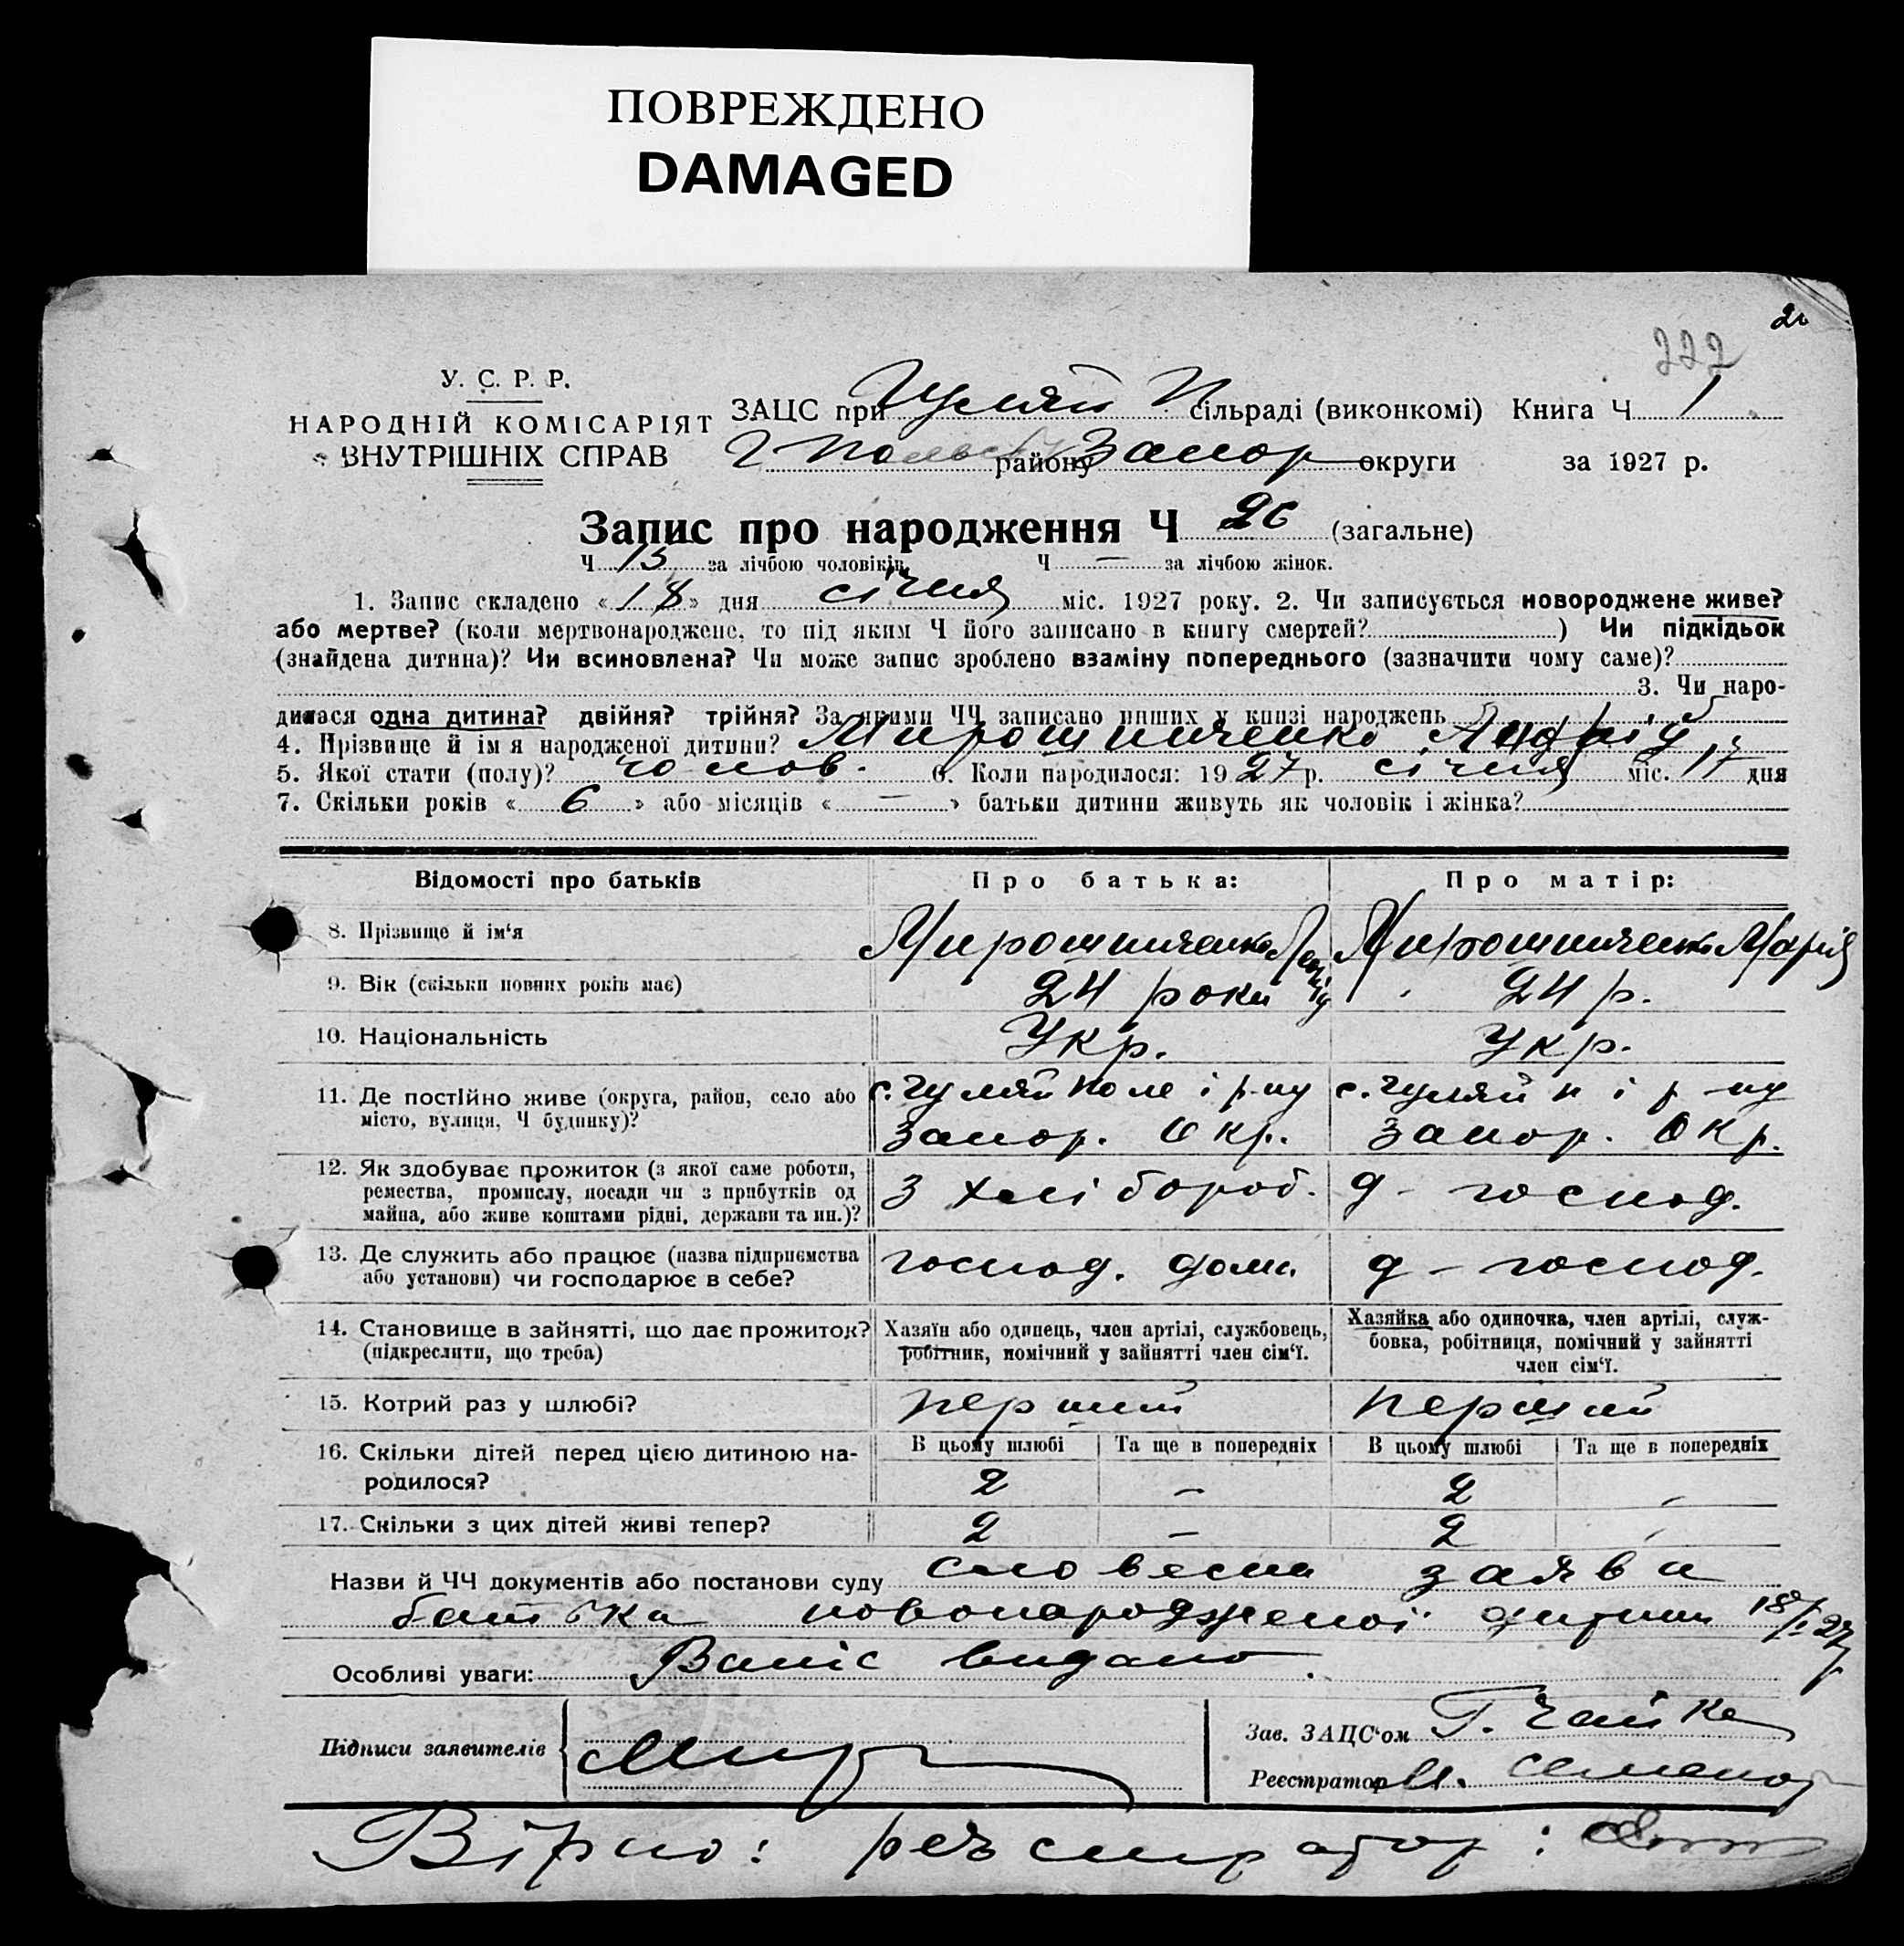 ПОВРЕЖДЕНО
DAMAGED
222
У. С. Р. Р.
НАРОДНІЙ КОМІСАРІЯТ
ВНУТРІШНІХ СПРАВ
ЗАЦС при Гуляй П сільраді (виконкомі) Книга Ч 1
Г Польськ району Запор округи за 1927 р.
Запис про народження Ч 26 (загальне)
Ч 15 за лічбою чоловіків. Ч — за лічбою жінок.
1. Запис складено «18» дня січня міс. 1927 року. 2. Чи записується новороджене живе?
або мертве? (коли мертвонароджене, то під яким Ч його записано в книгу смертей? ) Чи підкідьок
(знайдена дитина)? Чи всиновлена? Чи може запис зроблено взаміну попереднього (зазначити чому саме)?
3. Чи наро-
дилася одна дитина? двійня? трійня? За якими ЧЧ записано инших у книзі народжень
4. Прізвище й ім я народженої дитини? Мирошниченко Андрій
5. Якої стати (полу)? чолов. 6. Коли народилося: 1927 р. січня міс. 17 дня
7. Скільки років «6» або місяців «—» батьки дитини живуть як чоловік і жінка?
Відомості про батьків Про батька: Про матір:
8. Прізвище й ім‘я Мирошниченко Мирошниченко Марія
9. Вік (скільки повних років має) 24 роки 24 р.
10. Національність Укр. Укр.
11. Де постійно живе (округа, район, село або с. Гуляй Поле і р-ну с. Гуляй п і р-ну
місто, вулиця, Ч будинку)? Запор. Окр. Запор. Окр.
12. Як здобуває прожиток (з якої саме роботи,
ремества, промислу, посади чи з прибутків од З хлібороб. д - господ.
майна, або живе коштами рідні, держави та ин.)?
13. Де служить або працює (назва підприємства господ. дома д - господ.
або установи) чи господарює в себе?
14. Становище в зайнятті, що дає прожиток? Хазяїн або одинець, член артілі, службовець, Хазяйка або одиночка, член артілі, служ-
(підкреслити, що треба) робітник, помічний у зайнятті член сім‘ї. бовка, робітниця, помічний у зайнятті
член сім‘ї.
15. Котрий раз у шлюбі? перший перший
16. Скільки дітей перед цією дитиною на- В цьому шлюбі Та ще в попередніх В цьому шлюбі Та ще в попередніх
родилося? 2 – 2 –
17. Скільки з цих дітей живі тепер? 2 – 2 –
Назви й ЧЧ документів або постанови суду словесна заява
батька новонародженої дитини 18/I 27 р
Особливі уваги: Випис видано.
Підписи заявителів Мир
Зав. ЗАЦС‘ом Г. Чайка
Реєстратор
Вірно: реєстратор: